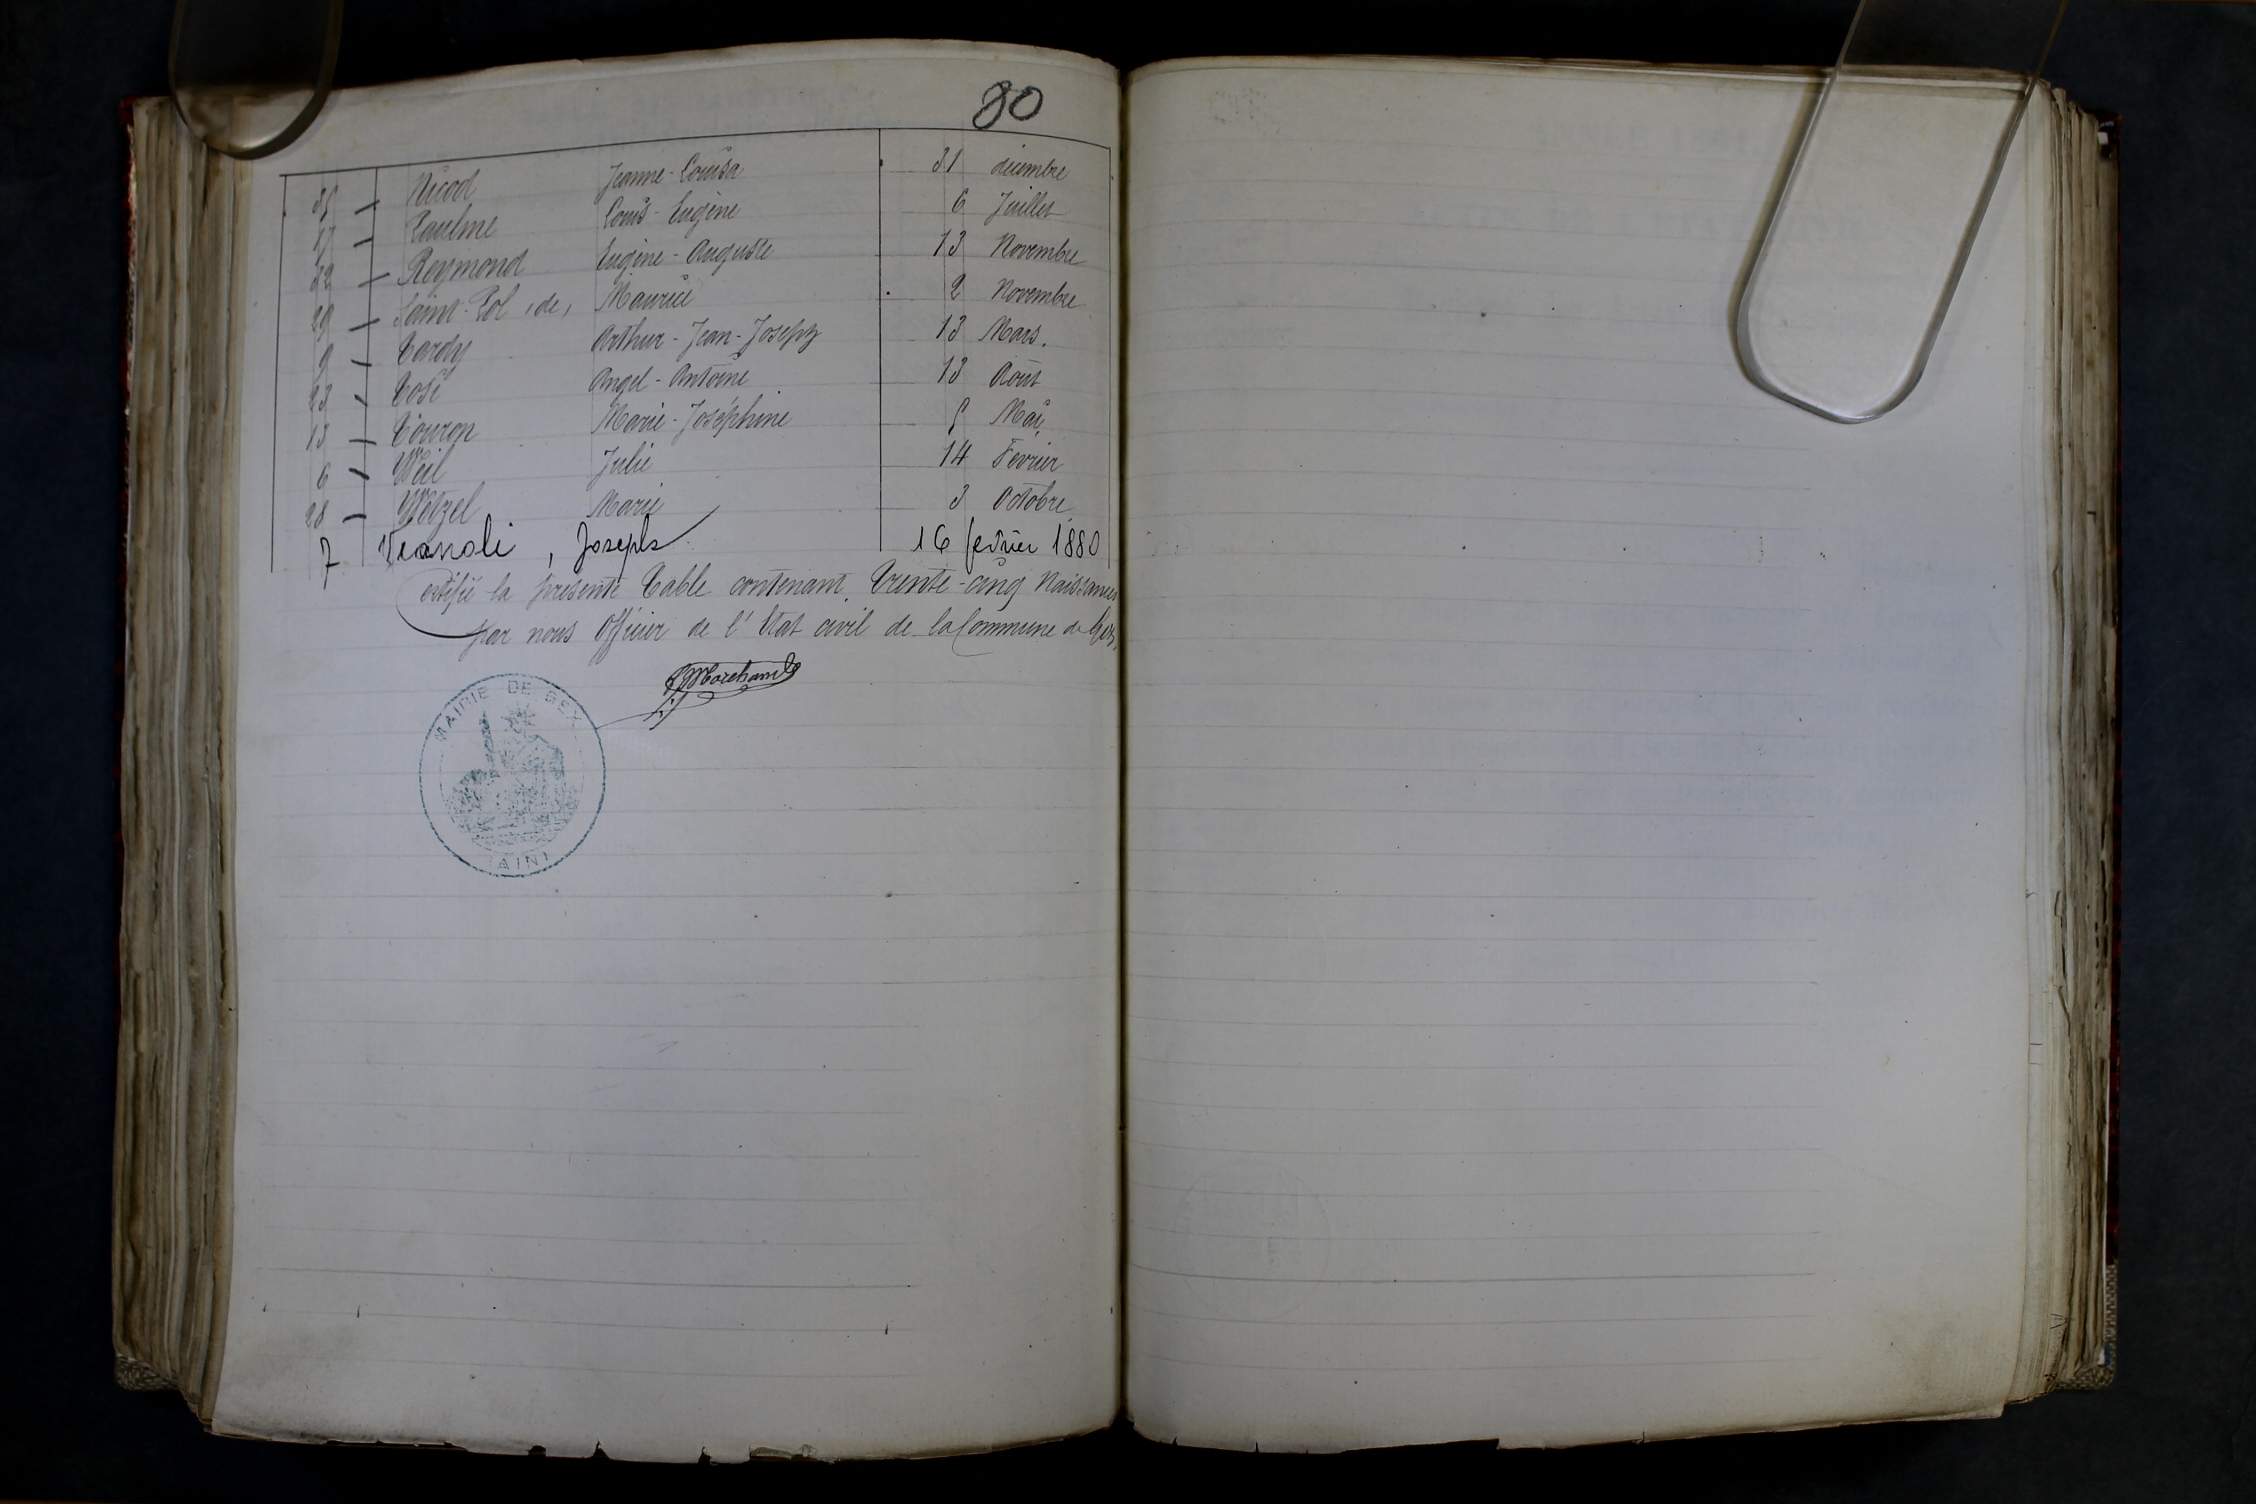 80
35 Nicod Jeanne-Louisa 31 décembre
17 Paulme Louis-Eugène 6 Juillet
32 Reymond Eugène-Auguste 13 Novembre
29 Saint-Pol (de) Maurice 2 Novembre
9 Tardy Arthur-Jean-Joseph 13 Mars.
23 Tosi Angel-Antoine 13 Août
13 Touron Marie-Joséphine 5 Mai
6 Weil Julie 14 Février
28 Wetzel Marie 3 Octobre
7 Vianoli, Joseph 16 février 1880
Certifié la présente Table contenant Trente-cinq Naissances
par nous Officier de l'Etat civil de la Commune de Gex.
Marchand
MAIRIE DE GEX
(AIN)